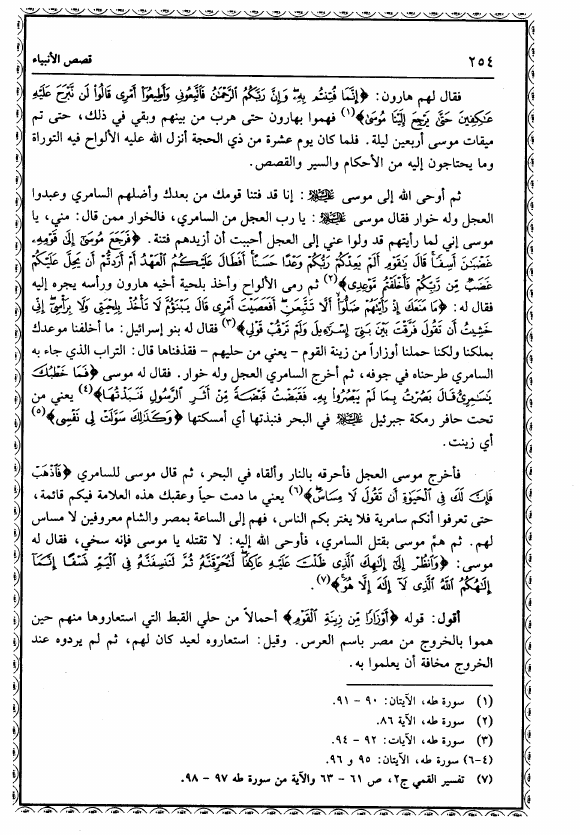 ٢٥٤
قصص الأنبياء
فقال لهم هارون: ﴿إِنَّمَا فُتِنتُم بِهِۦ وَإِنَّ رَبَّكُمُ الرَّحْمَٰنُ فَاتَّبِعُونِى وَأَطِيعُوٓا أَمْرِى قَالُوا لَن نَّبْرَحَ عَلَيْهِ
عَٰكِفِينَ حَتَّىٰ يَرْجِعَ إِلَيْنَا مُوسَىٰ﴾(١) فهموا بهارون حتى هرب من بينهم وبقي في ذلك، حتى تم
ميقات موسى أربعين ليلة. فلما كان يوم عشرة من ذي الحجة أنزل الله عليه الألواح فيه التوراة
وما يحتاجون إليه من الأحكام والسير والقصص.
ثم أوحى الله إلى موسى ﵇: إنا قد فتنا قومك من بعدك وأضلهم السامري وعبدوا
العجل وله خوار فقال موسى ﵇: يا رب العجل من السامري، فالخوار ممن قال: مني، يا
موسى إني لما رأيتهم قد ولوا عني إلى العجل أحببت أن أزيدهم فتنة. ﴿فَرَجَعَ مُوسَىٰٓ إِلَىٰ قَوْمِهِۦ
غَضْبَٰنَ أَسِفًا قَالَ يَٰقَوْمِ أَلَمْ يَعِدْكُمْ رَبُّكُمْ وَعْدًا حَسَنًا أَفَطَالَ عَلَيْكُمُ الْعَهْدُ أَمْ أَرَدتُّمْ أَن يَحِلَّ عَلَيْكُمْ
غَضَبٌ مِّن رَّبِّكُمْ فَأَخْلَفْتُم مَّوْعِدِى﴾(٢) ثم رمى الألواح وأخذ بلحية أخيه هارون ورأسه يجره إليه
فقال له: ﴿مَا مَنَعَكَ إِذْ رَأَيْتَهُمْ ضَلُّوٓا أَلَّا تَتَّبِعَنِ أَفَعَصَيْتَ أَمْرِى قَالَ يَبْنَؤُمَّ لَا تَأْخُذْ بِلِحْيَتِى وَلَا بِرَأْسِىٓ إِنِّى
خَشِيتُ أَن تَقُولَ فَرَّقْتَ بَيْنَ بَنِىٓ إِسْرَٰٓءِيلَ وَلَمْ تَرْقُبْ قَوْلِى﴾(٣) فقال له بنو إسرائيل: ما أخلفنا موعدك
بملكنا ولكنا حملنا أوزاراً من زينة القوم - يعني من حليهم - فقذفناها قال: التراب الذي جاء به
السامري طرحناه في جوفه، ثم أخرج السامري العجل وله خوار. فقال له موسى ﴿فَمَا خَطْبُكَ
يَٰسَٰمِرِىُّ قَالَ بَصُرْتُ بِمَا لَمْ يَبْصُرُوا بِهِۦ فَقَبَضْتُ قَبْضَةً مِّنْ أَثَرِ الرَّسُولِ فَنَبَذْتُهَا﴾(٤) يعني من
تحت حافر رمكة جبرئيل ﵇ في البحر فنبذتها أي أمسكتها ﴿وَكَذَٰلِكَ سَوَّلَتْ لِى نَفْسِى﴾(٥)
أي زينت.
فأخرج موسى العجل فأحرقه بالنار وألقاه في البحر، ثم قال موسى للسامري ﴿فَاذْهَبْ
فَإِنَّ لَكَ فِى الْحَيَوٰةِ أَن تَقُولَ لَا مِسَاسَ﴾(٦) يعني ما دمت حياً وعقبك هذه العلامة فيكم قائمة،
حتى تعرفوا أنكم سامرية فلا يغتر بكم الناس، فهم إلى الساعة بمصر والشام معروفين لا مساس
لهم. ثم همَّ موسى بقتل السامري، فأوحى الله إليه: لا تقتله يا موسى فإنه سخي، فقال له
موسى: ﴿وَانظُرْ إِلَىٰٓ إِلَٰهِكَ الَّذِى ظَلْتَ عَلَيْهِ عَاكِفًا لَّنُحَرِّقَنَّهُ ثُمَّ لَنَنسِفَنَّهُ فِى الْيَمِّ نَسْفًا إِنَّمَآ
إِلَٰهُكُمُ اللَّهُ الَّذِى لَآ إِلَٰهَ إِلَّا هُوَ﴾(٧).
أقول: قوله ﴿أَوْزَارًا مِّن زِينَةِ الْقَوْمِ﴾ أحمالاً من حلي القبط التي استعاروها منهم حين
هموا بالخروج من مصر باسم العرس. وقيل: استعاروه لعيد كان لهم، ثم لم يردوه عند
الخروج مخافة أن يعلموا به.
(١) سورة طه، الآيتان: ٩٠ - ٩١.
(٢) سورة طه، الآية ٨٦.
(٣) سورة طه، الآيات: ٩٢ - ٩٤.
(٤-٦) سورة طه، الآيتان: ٩٥ و ٩٦.
(٧) تفسير القمي ج٢، ص ٦١ - ٦٣ والآية من سورة طه ٩٧ - ٩٨.